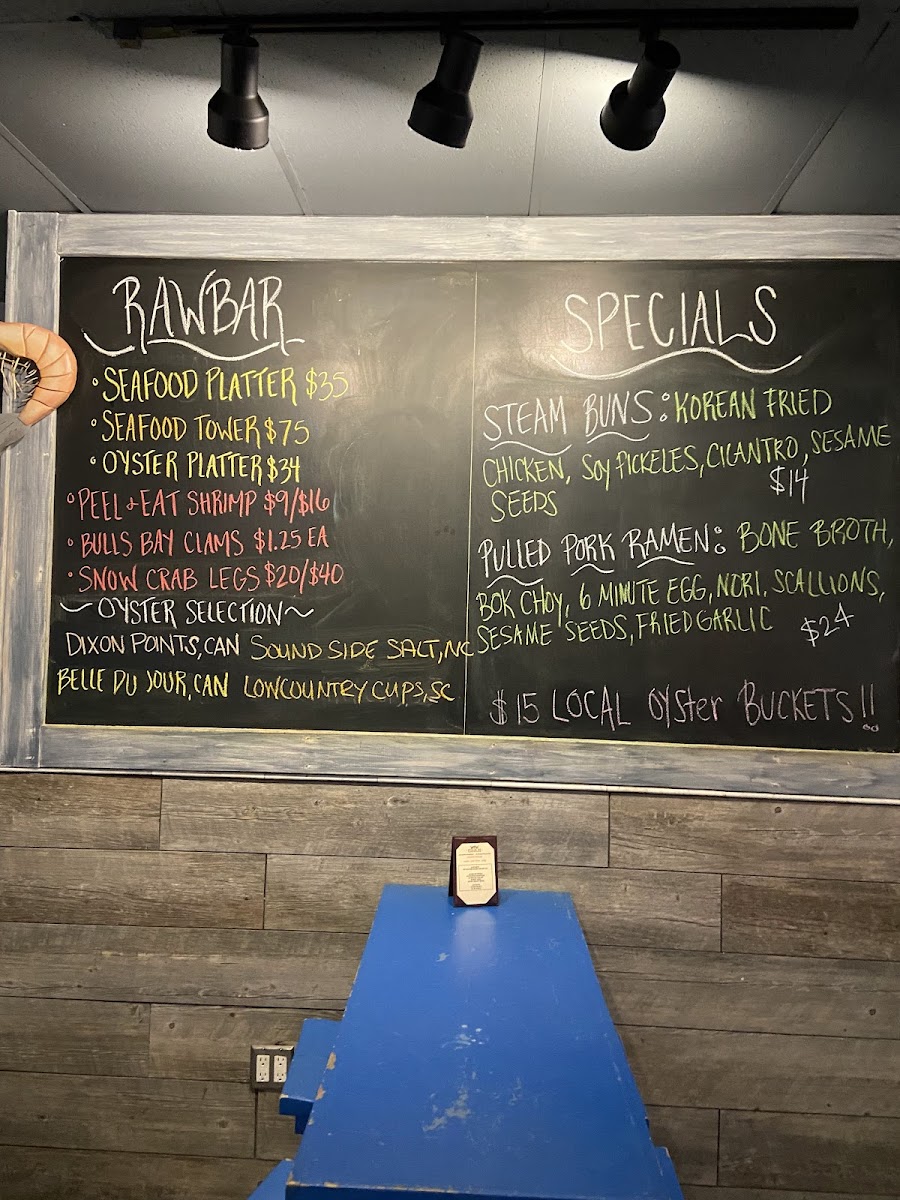 RAWBAR
• SEAFOOD PLATTER $35
• SEAFOOD TOWER $75
• OYSTER PLATTER $34
• PEEL & EAT SHRIMP $9/$16
• BULLS BAY CLAMS $1.25 EA
• SNOW CRAB LEGS $20/$40
~OYSTER SELECTION~
DIXON POINTS, CAN SOUND SIDE SALT, NC
BELLE DU JOUR, CAN LOWCOUNTRY CUPS, SC
SPECIALS
STEAM BUNS: KOREAN FRIED
CHICKEN, SOY PICKELES, CILANTRO, SESAME
SEEDS $14
PULLED PORK RAMEN: BONE BROTH,
BOK CHOY, 6 MINUTE EGG, NORI, SCALLIONS,
SESAME SEEDS, FRIED GARLIC $24
$15 LOCAL OYSTER BUCKETS!!